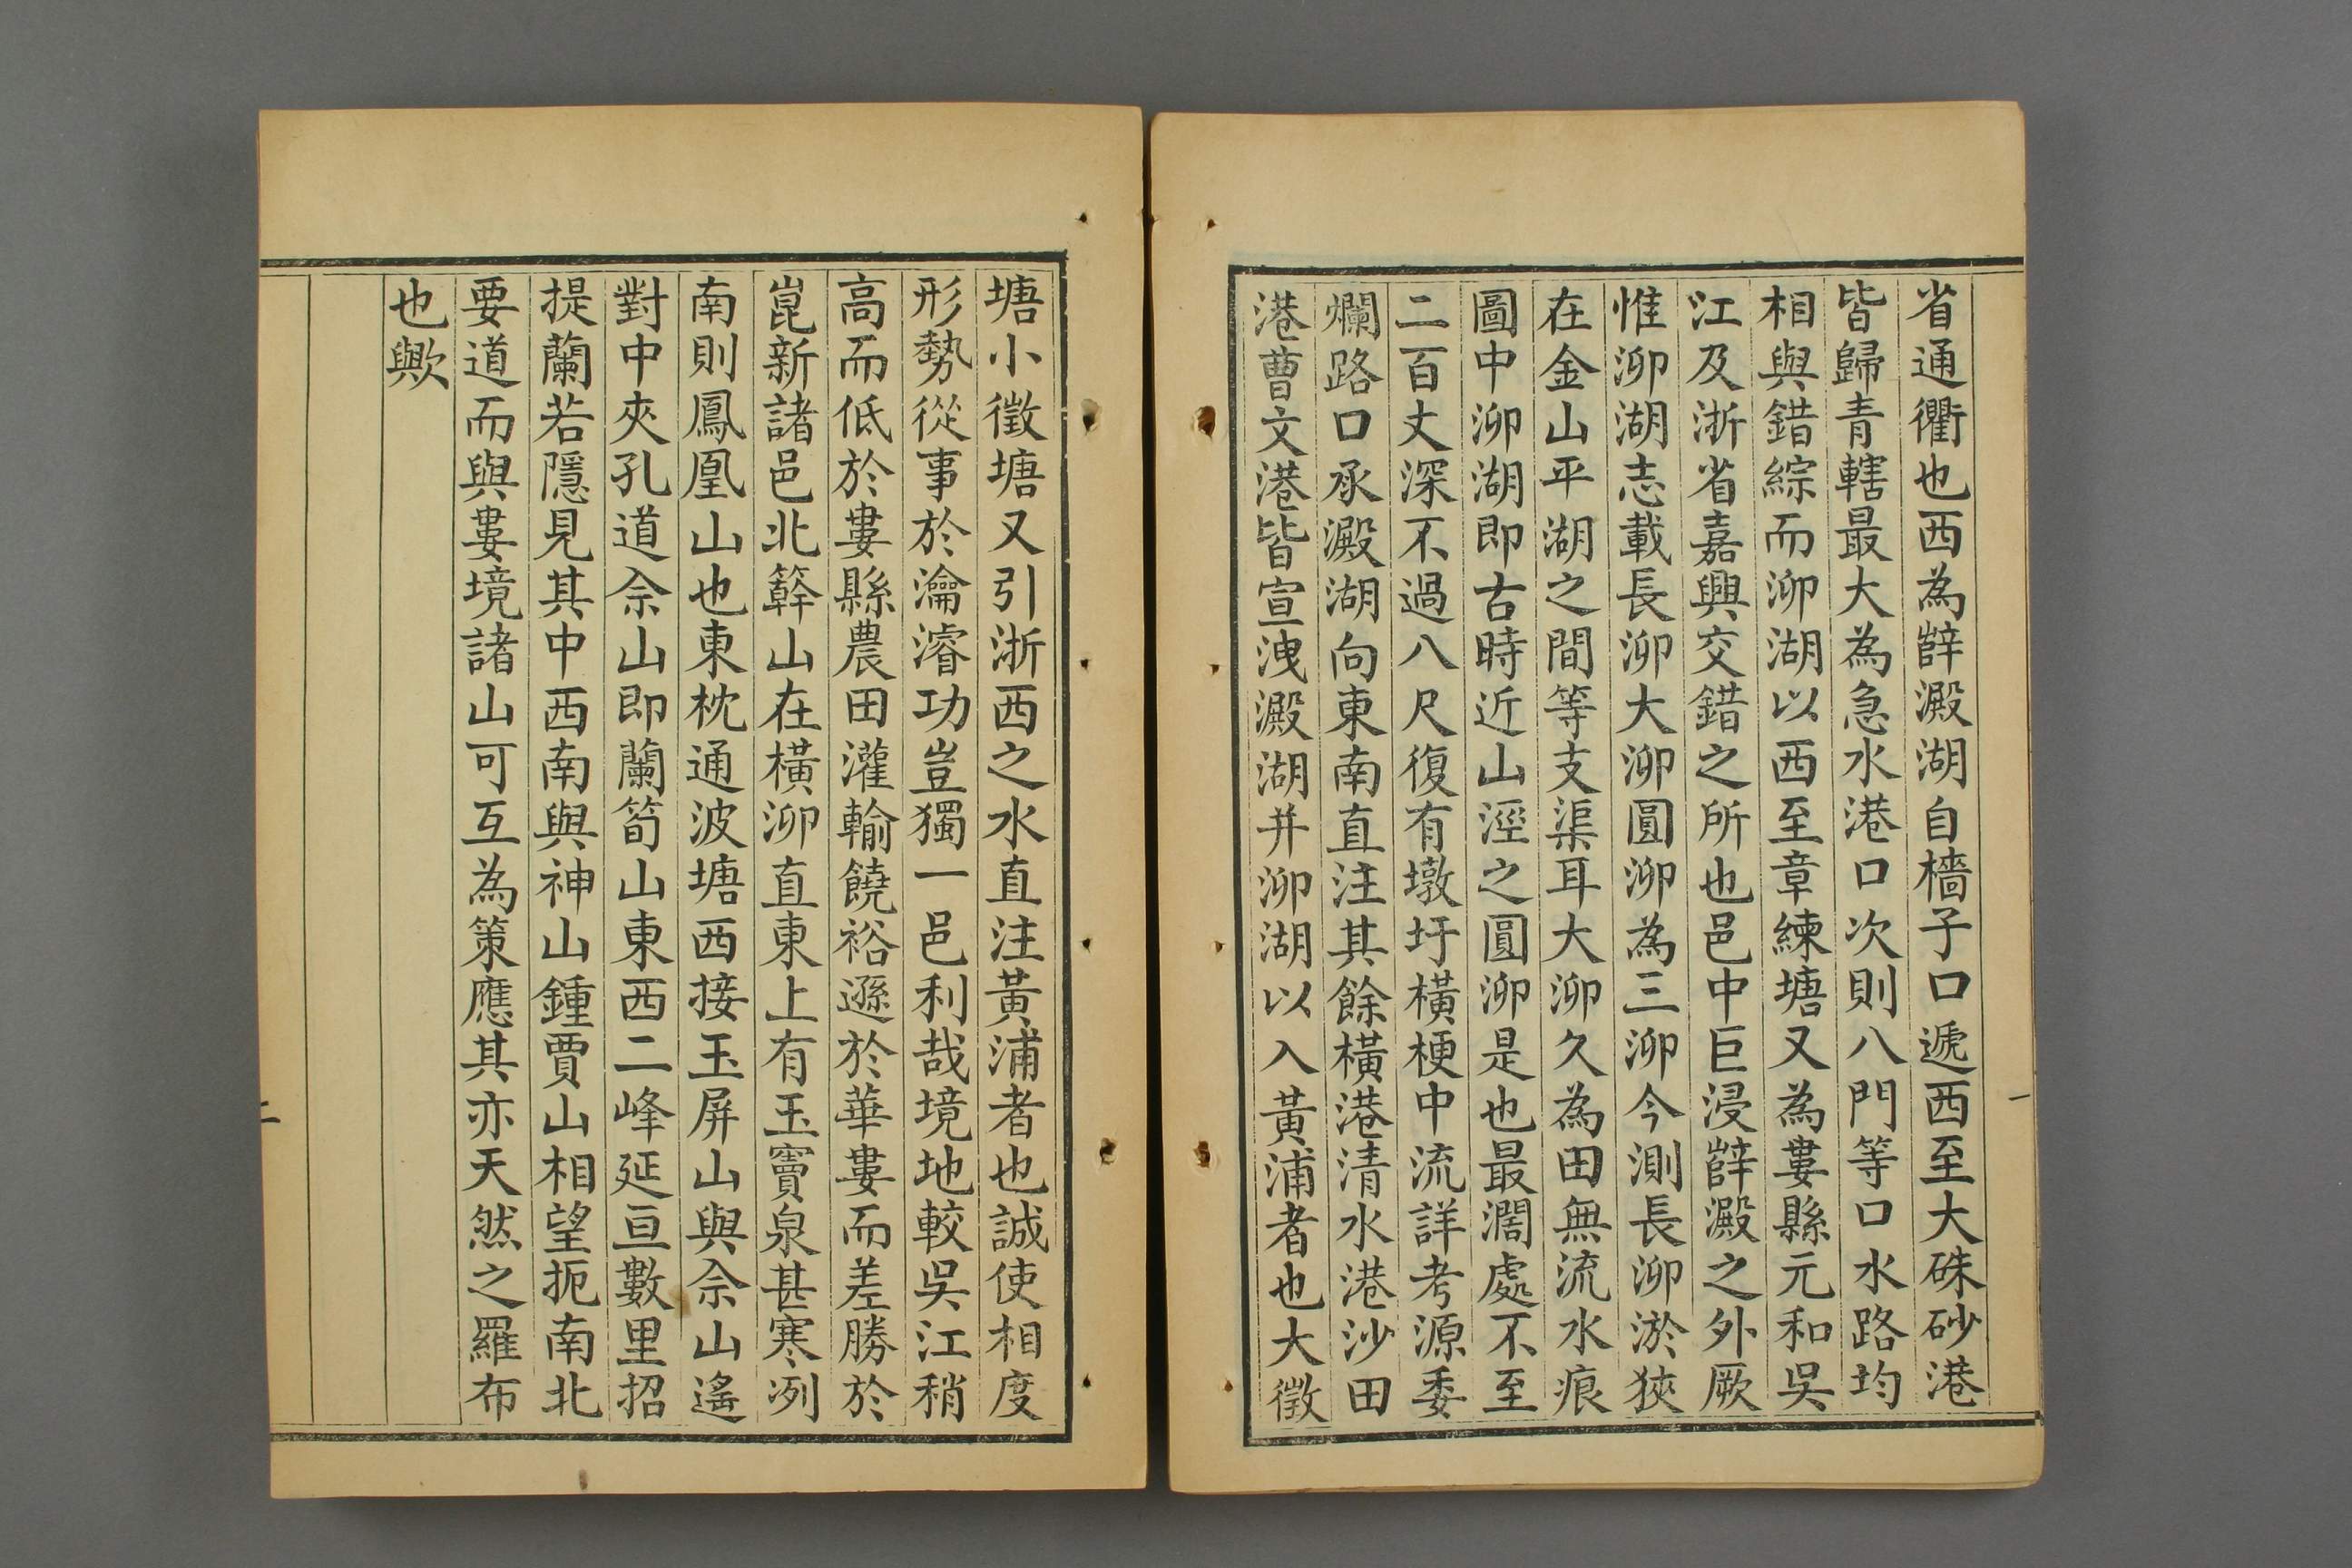 省通衢也西為薛澱湖自檣子口遞西至大硃砂港
皆歸青轄最大為急水港口次則八門等口水路均
相與錯綜而泖湖以西至章練塘又為婁縣元和吳
江及浙省嘉興交錯之所也邑中巨浸薛澱之外厥
惟泖湖志載長泖大泖圓泖為三泖今測長泖淤狹
在金山平湖之間等支渠耳大泖久為田無流水痕
圖中泖湖即古時近山涇之圓泖是也最濶處不至
二百丈深不過八尺復有墩圩橫梗中流詳考源委
爛路口承澱湖向東南直注其餘橫港清水港沙田
港曹文港皆宣洩澱湖并泖湖以入黃浦者也大徵
一
塘小徵塘又引浙西之水直注黃浦者也誠使相度
形勢從事於瀹濬功豈獨一邑利哉境地較吳江稍
高而低於婁縣農田灌輸饒裕遜於華婁而差勝於
崑新諸邑北簳山在橫泖直東上有玉竇泉甚寒冽
南則鳳凰山也東枕通波塘西接玉屏山與佘山遙
對中夾孔道佘山即蘭筍山東西二峰延亘數里招
提蘭若隱見其中西南與神山鍾賈山相望扼南北
要道而與婁境諸山可互為策應其亦天然之羅布
也歟